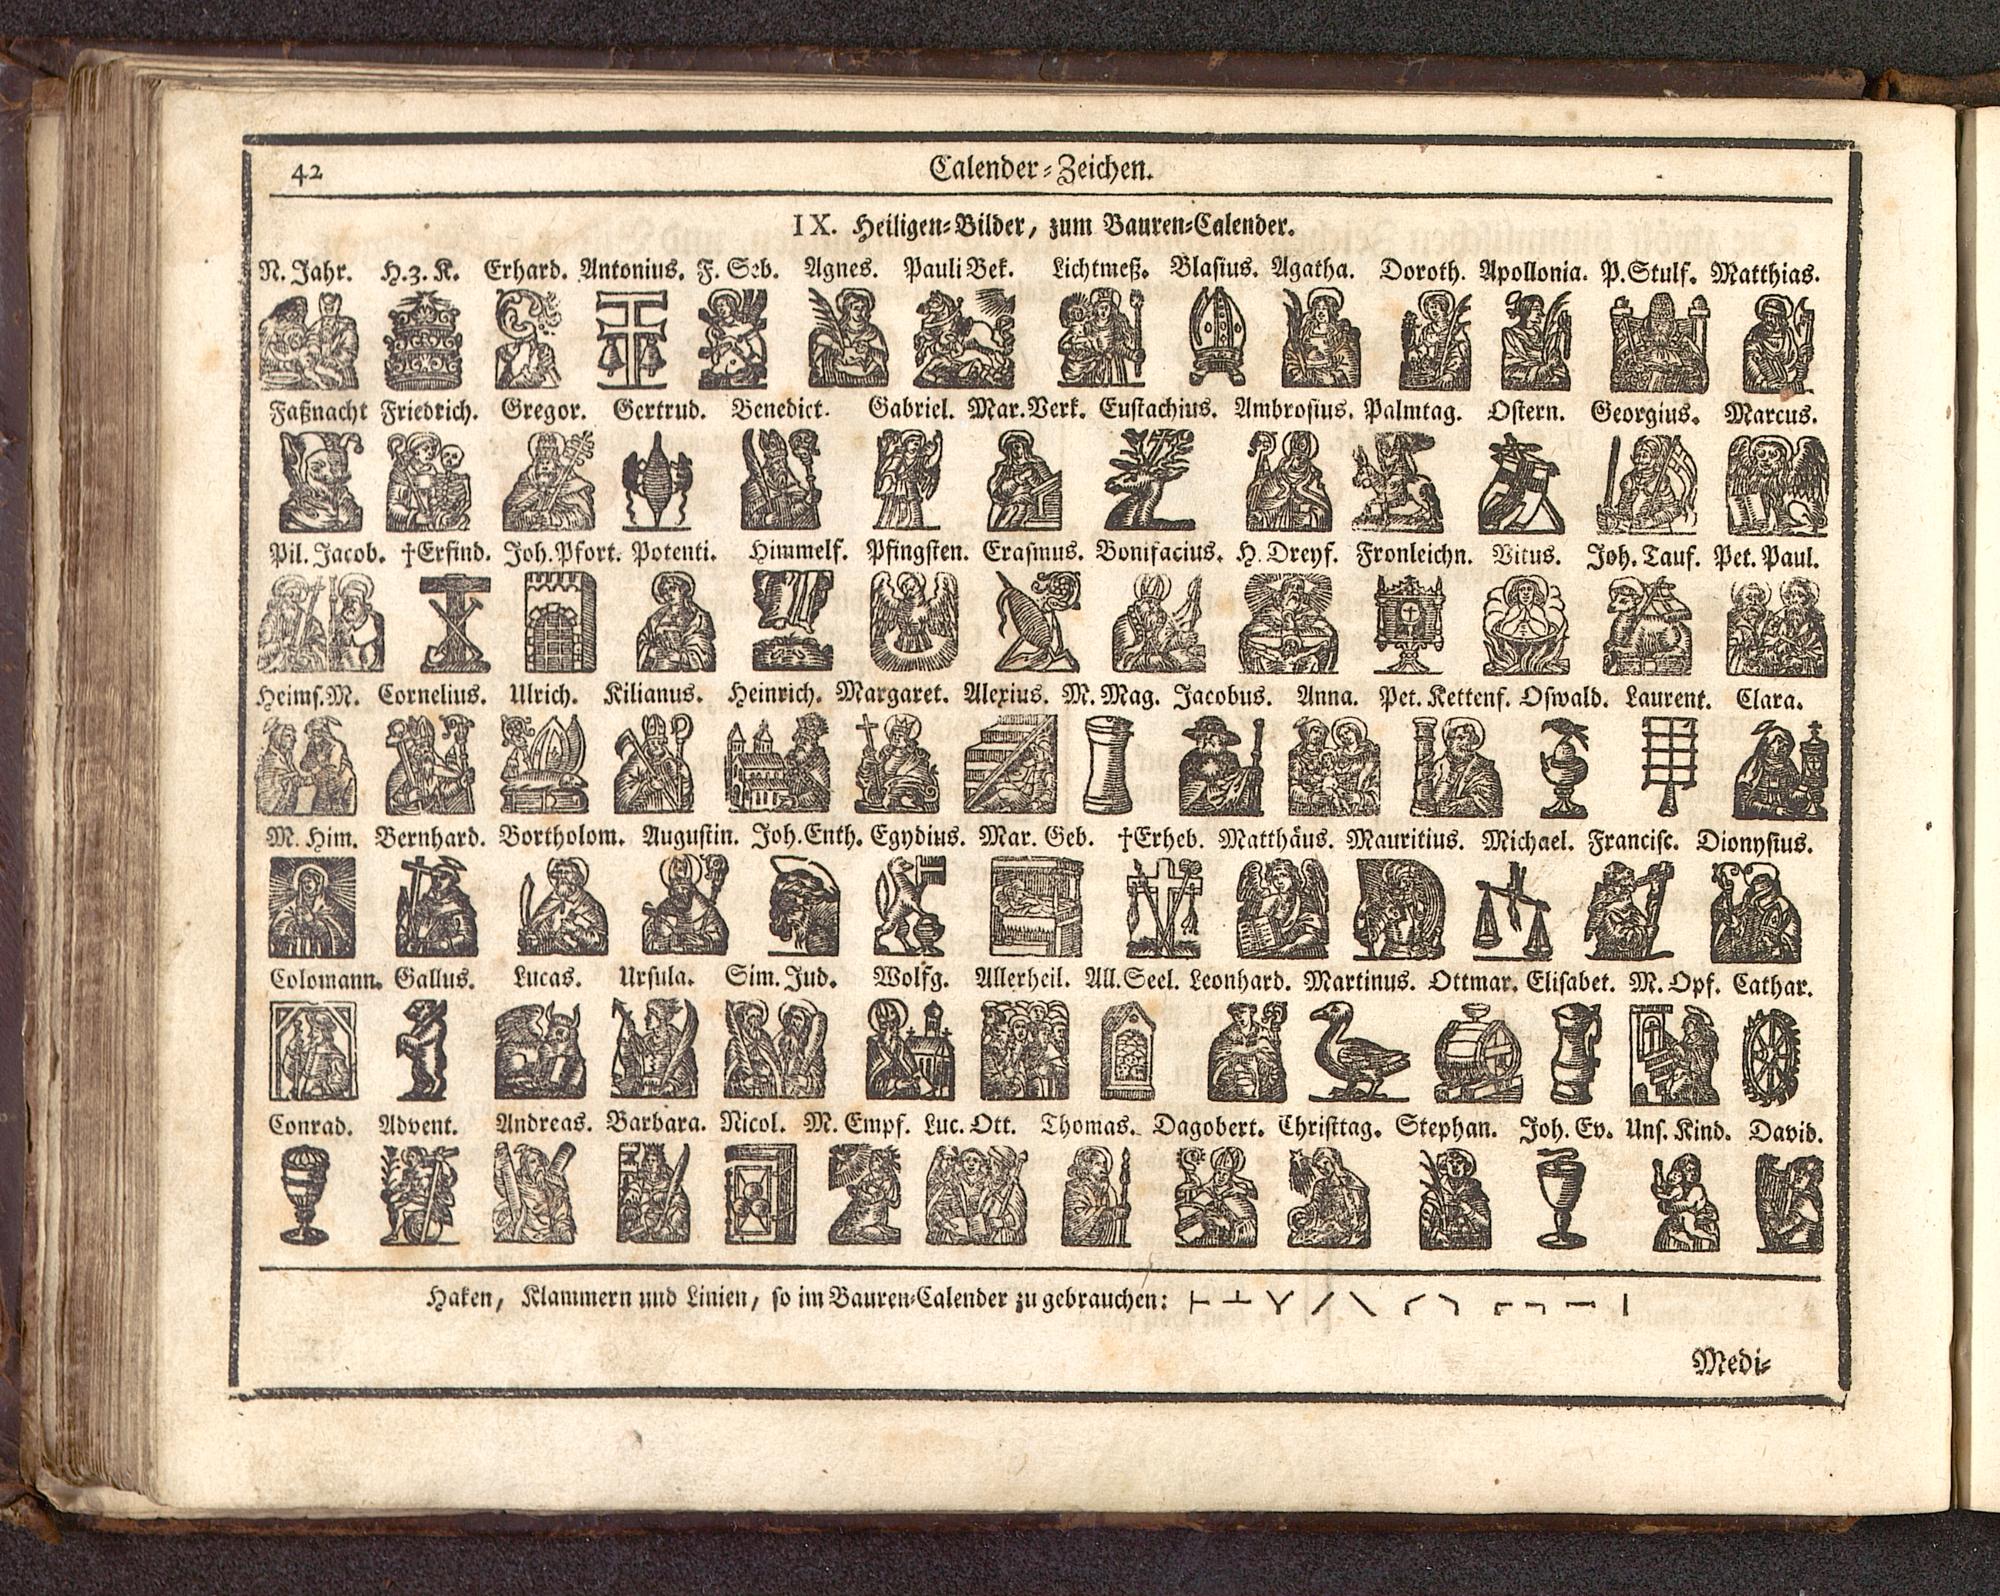 42
Calender-Zeichen.
IX. Heiligen-Bilder, zum Bauren-Calender.
N. Jahr. H. 3. K. Erhard. Antonius. F. Seb. Agnes. Pauli Bek. Lichtmeß. Blasius. Agatha. Doroth. Apollonia. P. Stulf. Matthias.
Faßnacht Friedrich. Gregor. Gertrud. Benedict. Gabriel. Mar. Verk. Eustachius. Ambrosius. Palmtag. Ostern. Georgius. Marcus.
Pil. Jacob. †Erfind. Joh. Pfort. Potenti. Himmelf. Pfingsten. Erasmus. Bonifacius. H. Dreyf. Fronleichn. Vitus. Joh. Tauf. Pet. Paul.
Heims. M. Cornelius. Ulrich. Kilianus. Heinrich. Margaret. Alexius. M. Mag. Jacobus. Anna. Pet. Kettenf. Oswald. Laurent. Clara.
M. Him. Bernhard. Bortholom. Augustin. Joh. Enth. Egydius. Mar. Geb. †Erheb. Matthäus. Mauritius. Michael. Francisc. Dionysius.
Colomann. Gallus. Lucas. Ursula. Sim. Jud. Wolfg. Allerheil. All. Seel. Leonhard. Martinus. Ottmar. Elisabet. M. Opf. Cathar.
Conrad. Advent. Andreas. Barbara. Nicol. M. Empf. Luc. Ott. Thomas. Dagobert. Christtag. Stephan. Joh. Ev. Uns. Kind. David.
Haken, Klammern und Linien, so im Bauren-Calender zu gebrauchen:
Medi-